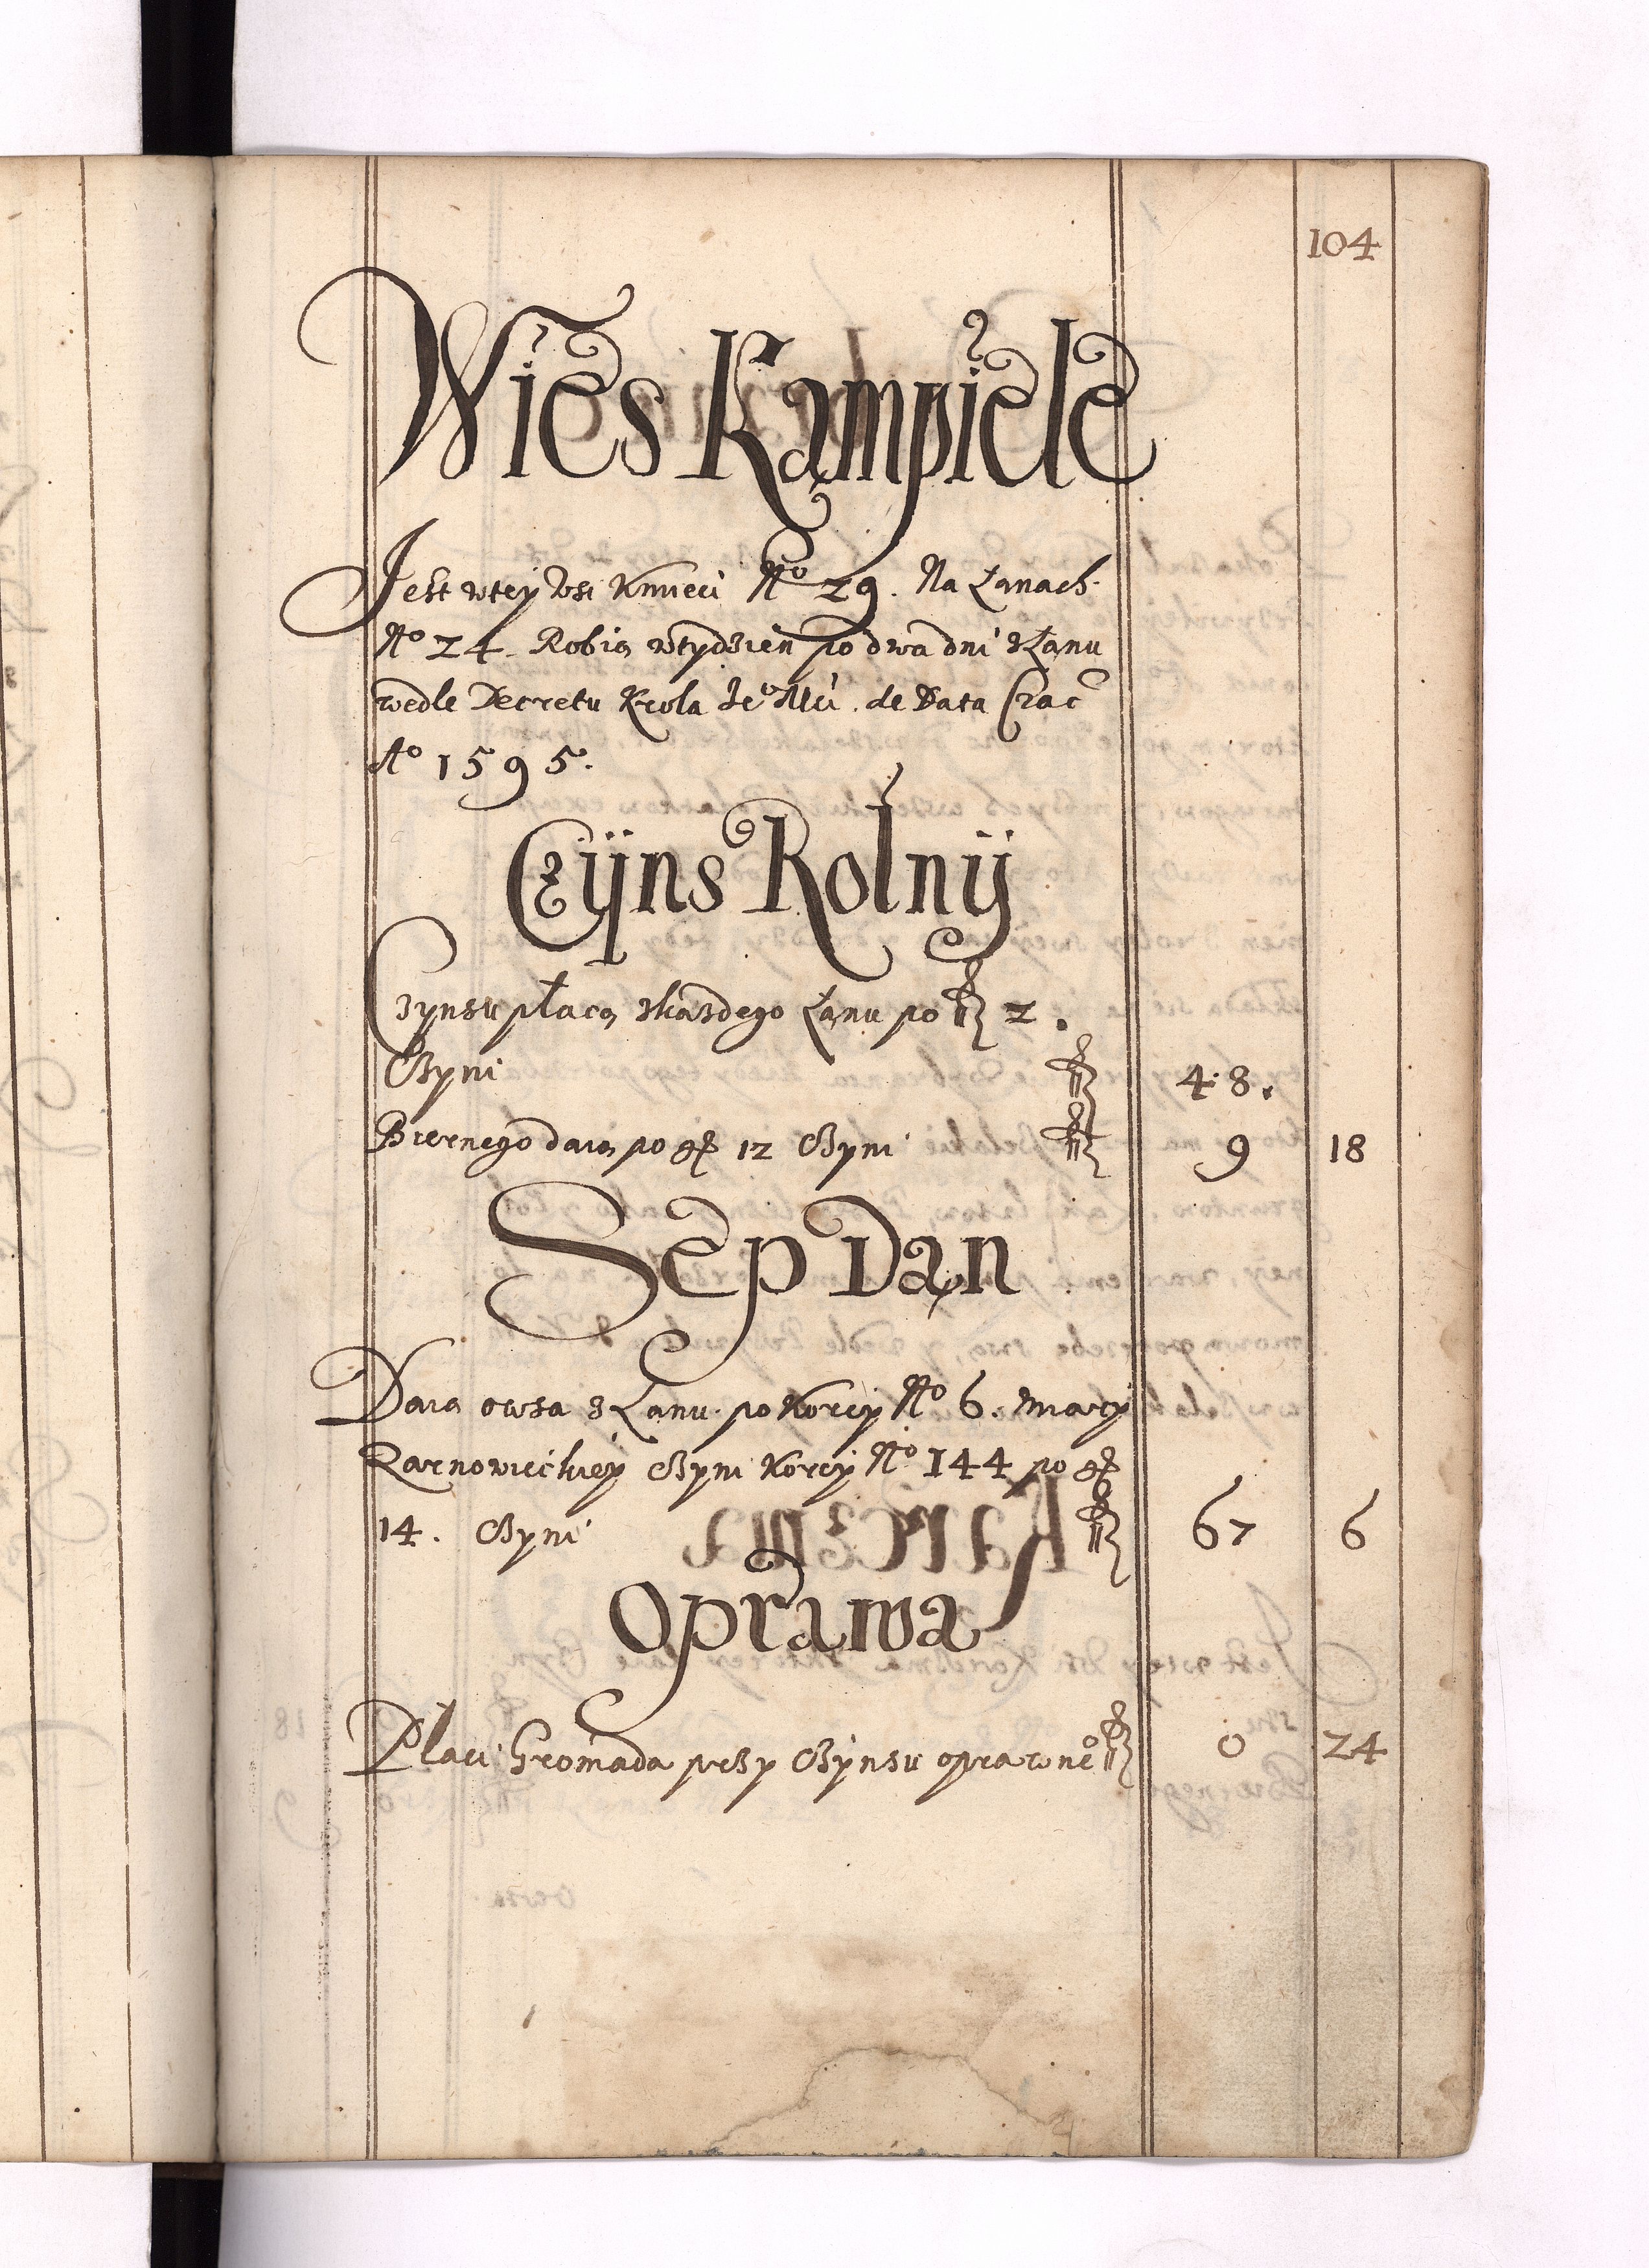 104
Wies Kąmpiele
Jest wtey wsi Kmieci No 29. Na Łanach
No 24. Robią wtydzien po dwa dni z Łanu
wedle Decretu Krola Jeo Mci. de Data Crac
Ao 1595.
Czÿns Rolnÿ
Czynsu płacą zkazdego Łanu po fl 2.
Czyni fl 48.
Biernego daią po gr 12 Czyni fl 9 18
Sep Dań
Daią owsa z Łanu po Korcy No 6. miary
Zarnowieckiey Czyni Korcy No 144 po gr
14. Czyni fl 67 6
Oprawa
Płaci Gromada przy Czynsu oprawne fl 0 24